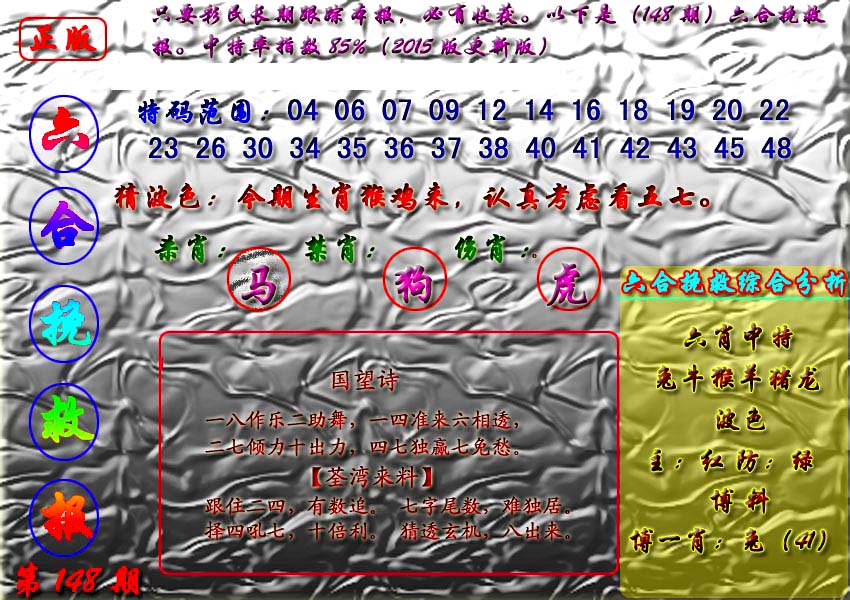 正版
只要彩民长期跟踪本报，必有收获。以下是（148期）六合挽救
报。中特率指数85%（2015版更新版）
六合挽救报
第148期
特码范围：04 06 07 09 12 14 16 18 19 20 22
23 26 30 34 35 36 37 38 40 41 42 43 45 48
猜波色：今期生肖猴鸡来，认真考虑看五七。
杀肖：马 禁肖：狗 伤肖：虎。
国望诗
一八作乐二助舞，一四准来六相透，
二七倾力十出力，四七独赢七免愁。
【荃湾来料】
跟住二四，有数追。 七字尾数，难独居。
择四吼七，十倍利。 猜透玄机，八出来。
六合挽救综合分析
六肖中特
兔牛猴羊猪龙
波色
主：红防：绿
博料
博一肖：兔（41）